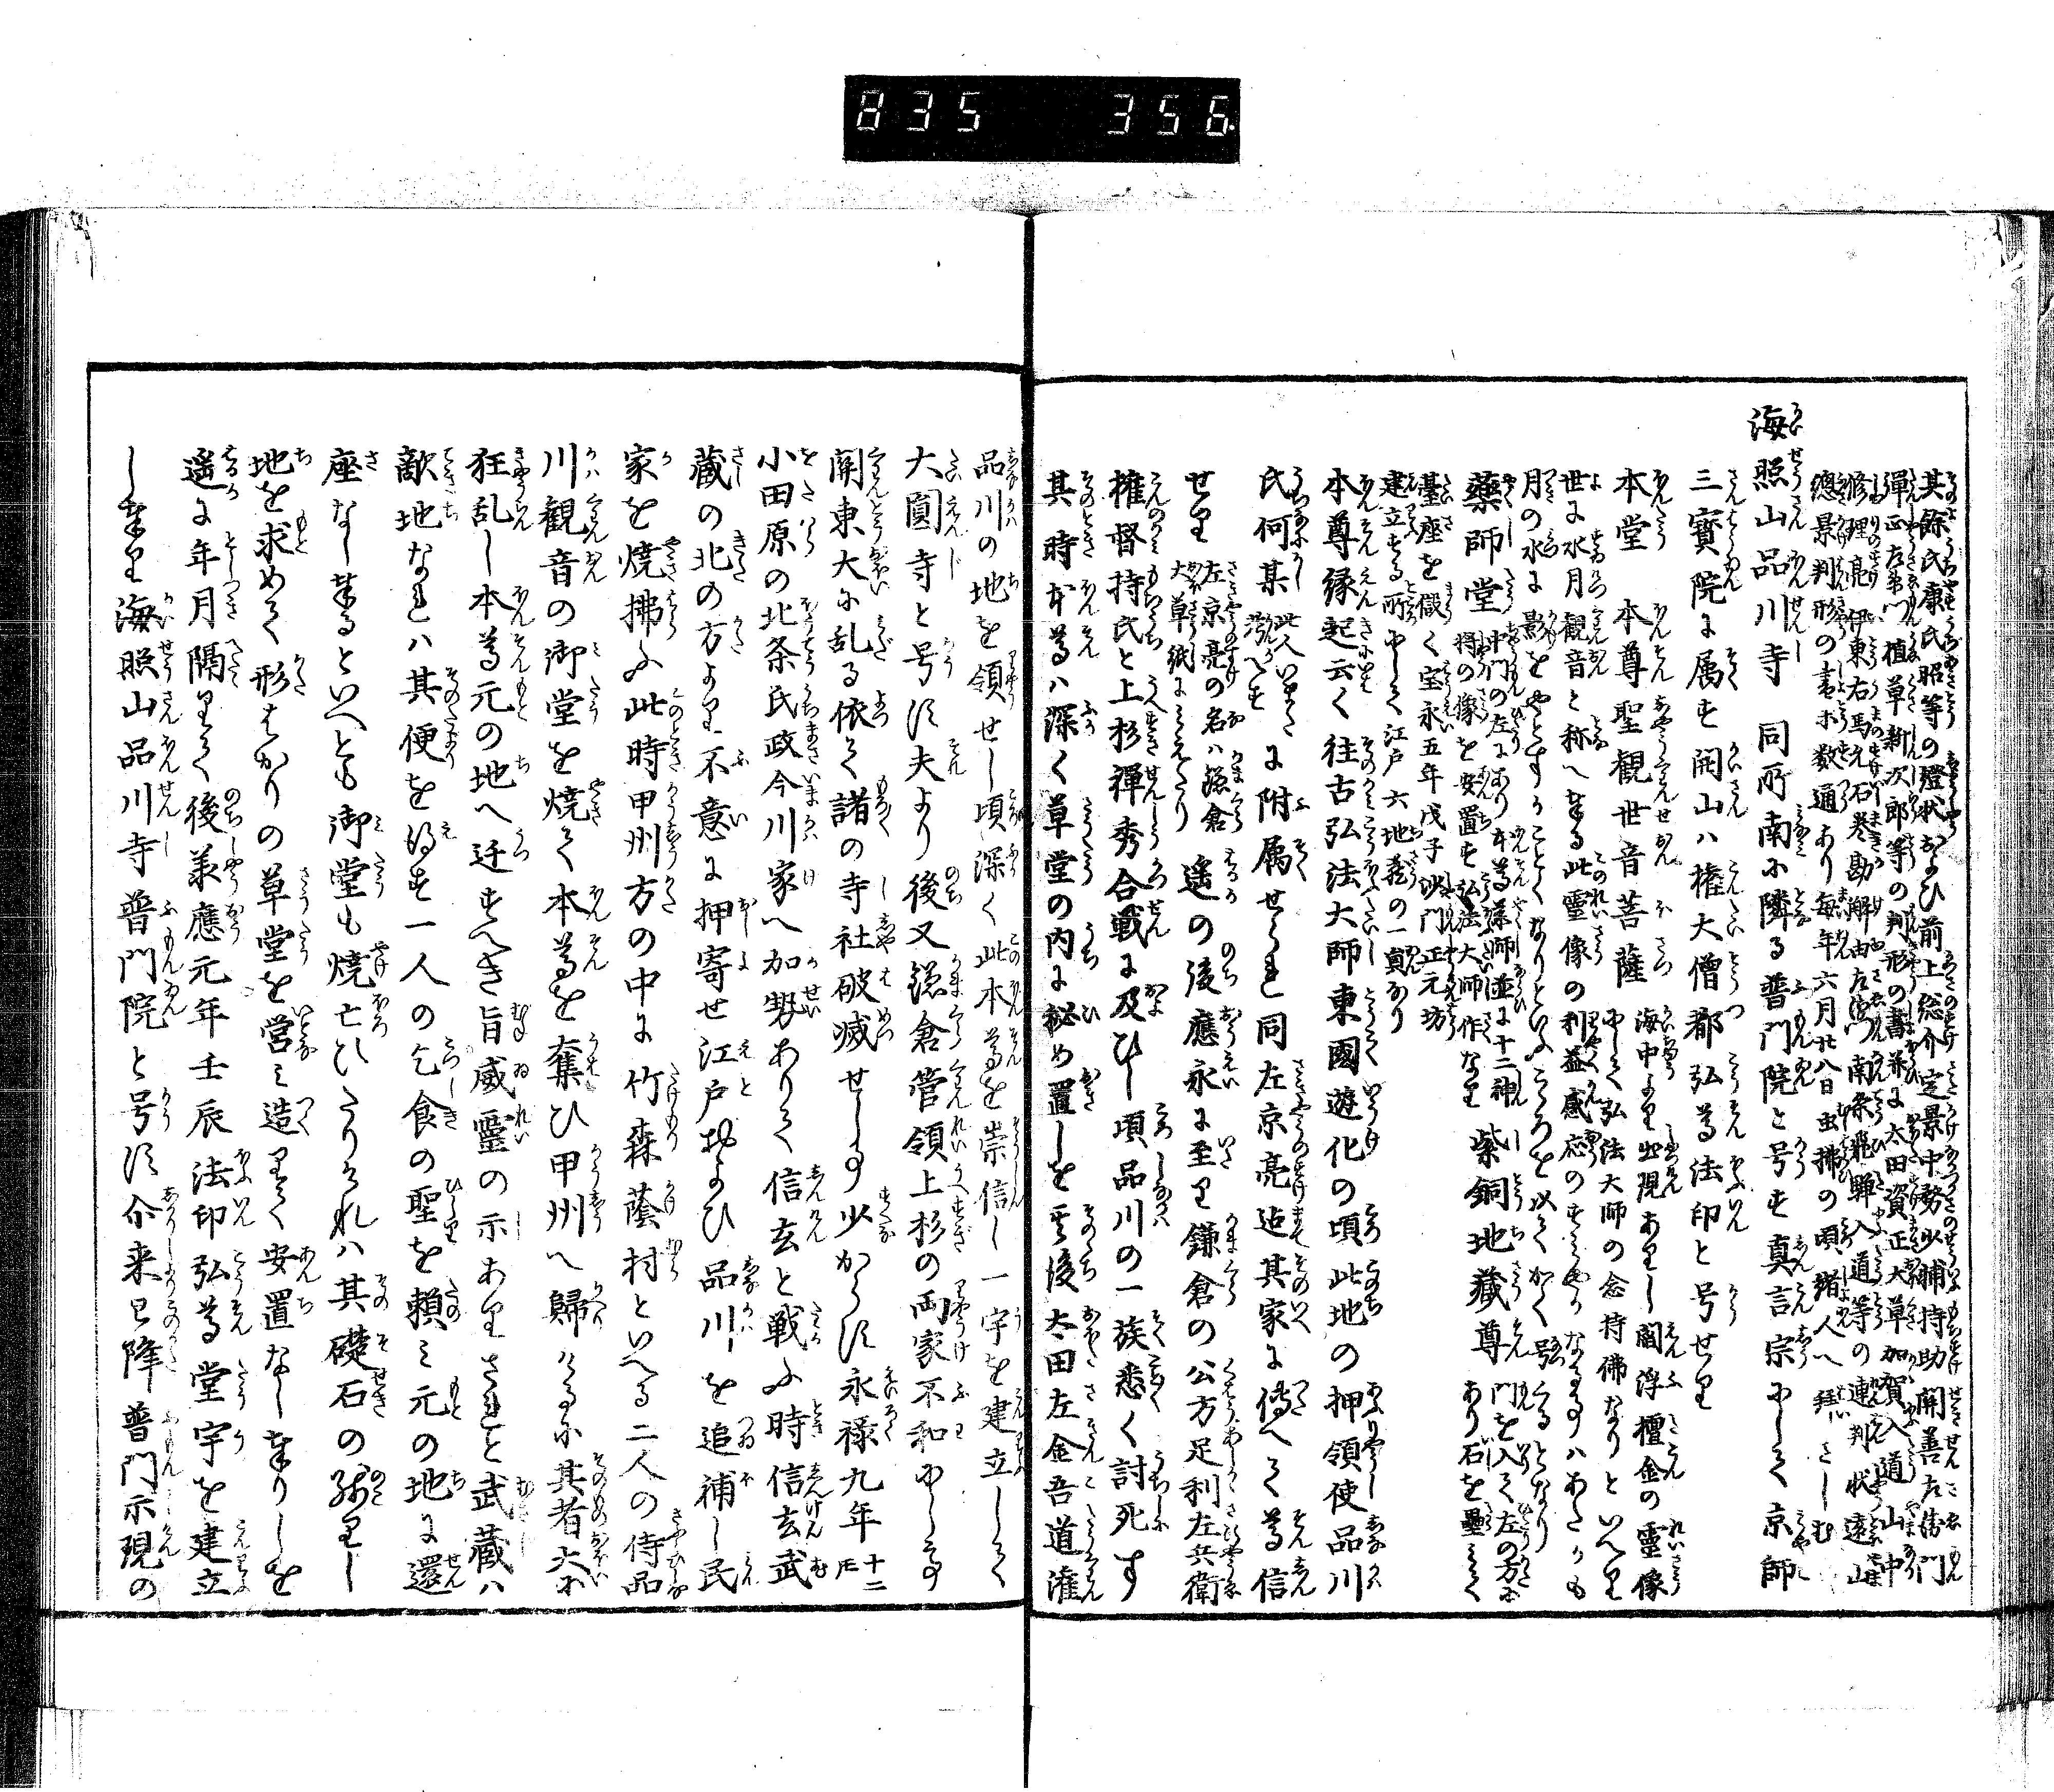 835 356
其餘氏康氏照等の證状および前上総介定景中務少輔持助開善左衛門
弾正左衛門植草新次郎等の判形の書并に太田資正大草加賀入道山中
修理亮伊東右馬允石巻勘解由左衛門南条飛騨入道等の連判状遠山
總景判形の書等数通あり毎年六月廿八日虫拂の頃緒人へ拜さしむ
海照山品川寺 同所南に隣る普門院と号す真言宗にして京師
三寳院に属す開山は権大僧都弘尊法印と号せり
本堂 本尊聖観世音菩薩 海中より出現ありし閻浮檀金の靈像
にして弘法大師の念持佛なりといへり
世に水月観音と称へ奉る此靈像の利益感応のすみやかなる事はあたかも
月の水に影をやとすかことくなりといふこころを以てかく号くるとなり
藥師堂 中門の左にあり本尊藥師並に十二神
將の像を安置す弘法大師作なり
紫銅地藏尊 門を入て左の方に
あり石を壘みて
臺座を儼く宝永五年戊子沙門正元坊
建立する所にして江戸六地蔵の一員なり
本尊縁起云く往古弘法大師東國遊化の頃此地の押領使品川
氏何某 此人いまた
考へす に附属せられ同左京亮迄其家に傳へて尊信
せり 左京亮の名は鎌倉
大草紙にみえたり 遙の後應永に至り鎌倉の公方足利左兵衛
権督持氏と上杉禅秀合戰に及ひし頃品川の一族悉く討死す
其時本尊は深く草堂の内に秘め置しを其後太田左金吾道潅
品川の地を領せし頃深く此本尊を崇信し一宇を建立して
大圓寺と号す夫より後又鎌倉管領上杉の両家不和にして
関東大に乱る依て諸の寺社破滅せし事少からす永禄九年 十二
月
小田原の北条氏政今川家へ加勢ありて信玄と戦ふ時信玄武
藏の北の方より不意に押寄せ江戸および品川を追補し民
家を焼拂ふ此時甲州方の中に竹森蔭村といへる二人の侍品
川観音の御堂を焼て本尊を奪ひ甲州へ歸けるに其者大に
狂乱し本尊元の地へ迁すへき旨威靈の示ありされと武藏は
敵地なれは其便を得す一人の乞食の聖を頼み元の地に還
座なし奉るといへとも御堂も焼亡ひたりけれは其礎石の殘りし
地を求めて形はかりの草堂を営み造りて安置なし奉りしを
遙に年月隔りて後羕應元年壬辰法印弘尊堂宇を建立
し奉り海照山品川寺普門院と号す尒来已降普門示現の